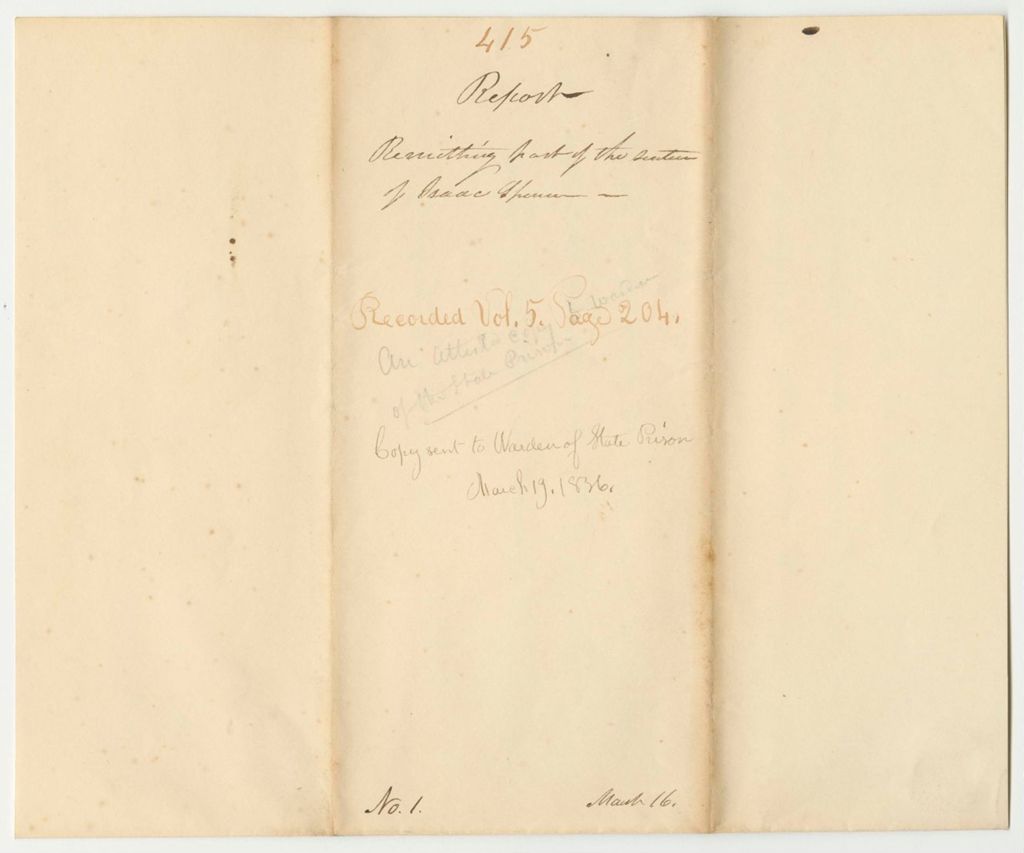 415
Report
Remitting part of the sentence
of Isaac Spencer
Recorded Vol. 5. Page 204.
An attested copy to Warden
of the State Prison
Copy sent to Warden of State Prison
March 19. 1836.
No. 1.
March 16.